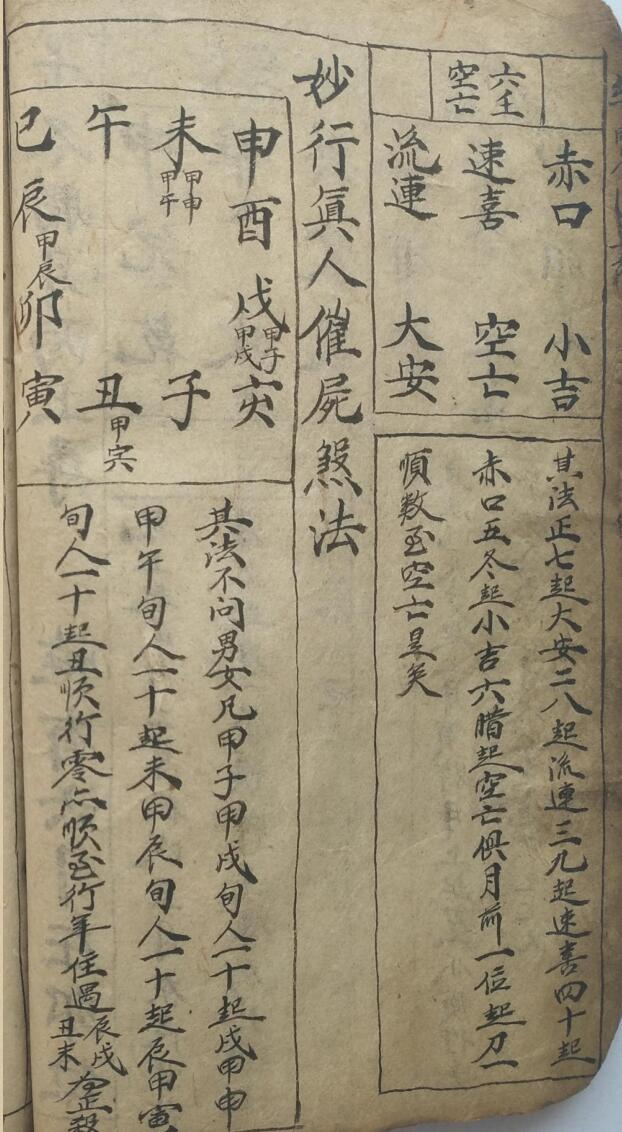 六壬
空亡
赤口 小吉
速喜 空亡
流連 大安
其法正七起大安二八起流連三九起速喜四十起
赤口五冬起小吉六腊起空亡俱月前一位起初一
順数至空亡是矣
妙行真人催屍煞法
申酉戌甲子甲戌亥
未甲申甲午 子
午 丑甲寅
巳辰甲辰卯寅
其法不问男女凡甲子甲戌旬人一十起戌甲申
甲午旬人一十起未甲辰旬人一十起辰甲寅
旬人一十起丑顺行零亦順至行年住遇辰戌丑未為正殺